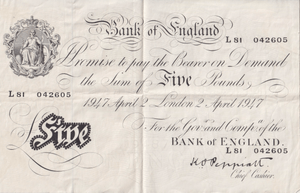 Bank of England
L81 042605
I Promise to pay the Bearer on Demand
the Sum of Five Pounds
L81 042605
1947 April 2 London 2 April 1947
For the Govr. and Compa. of the
BANK of ENGLAND.
L81 042605
Five
K O Peppiatt
Chief Cashier